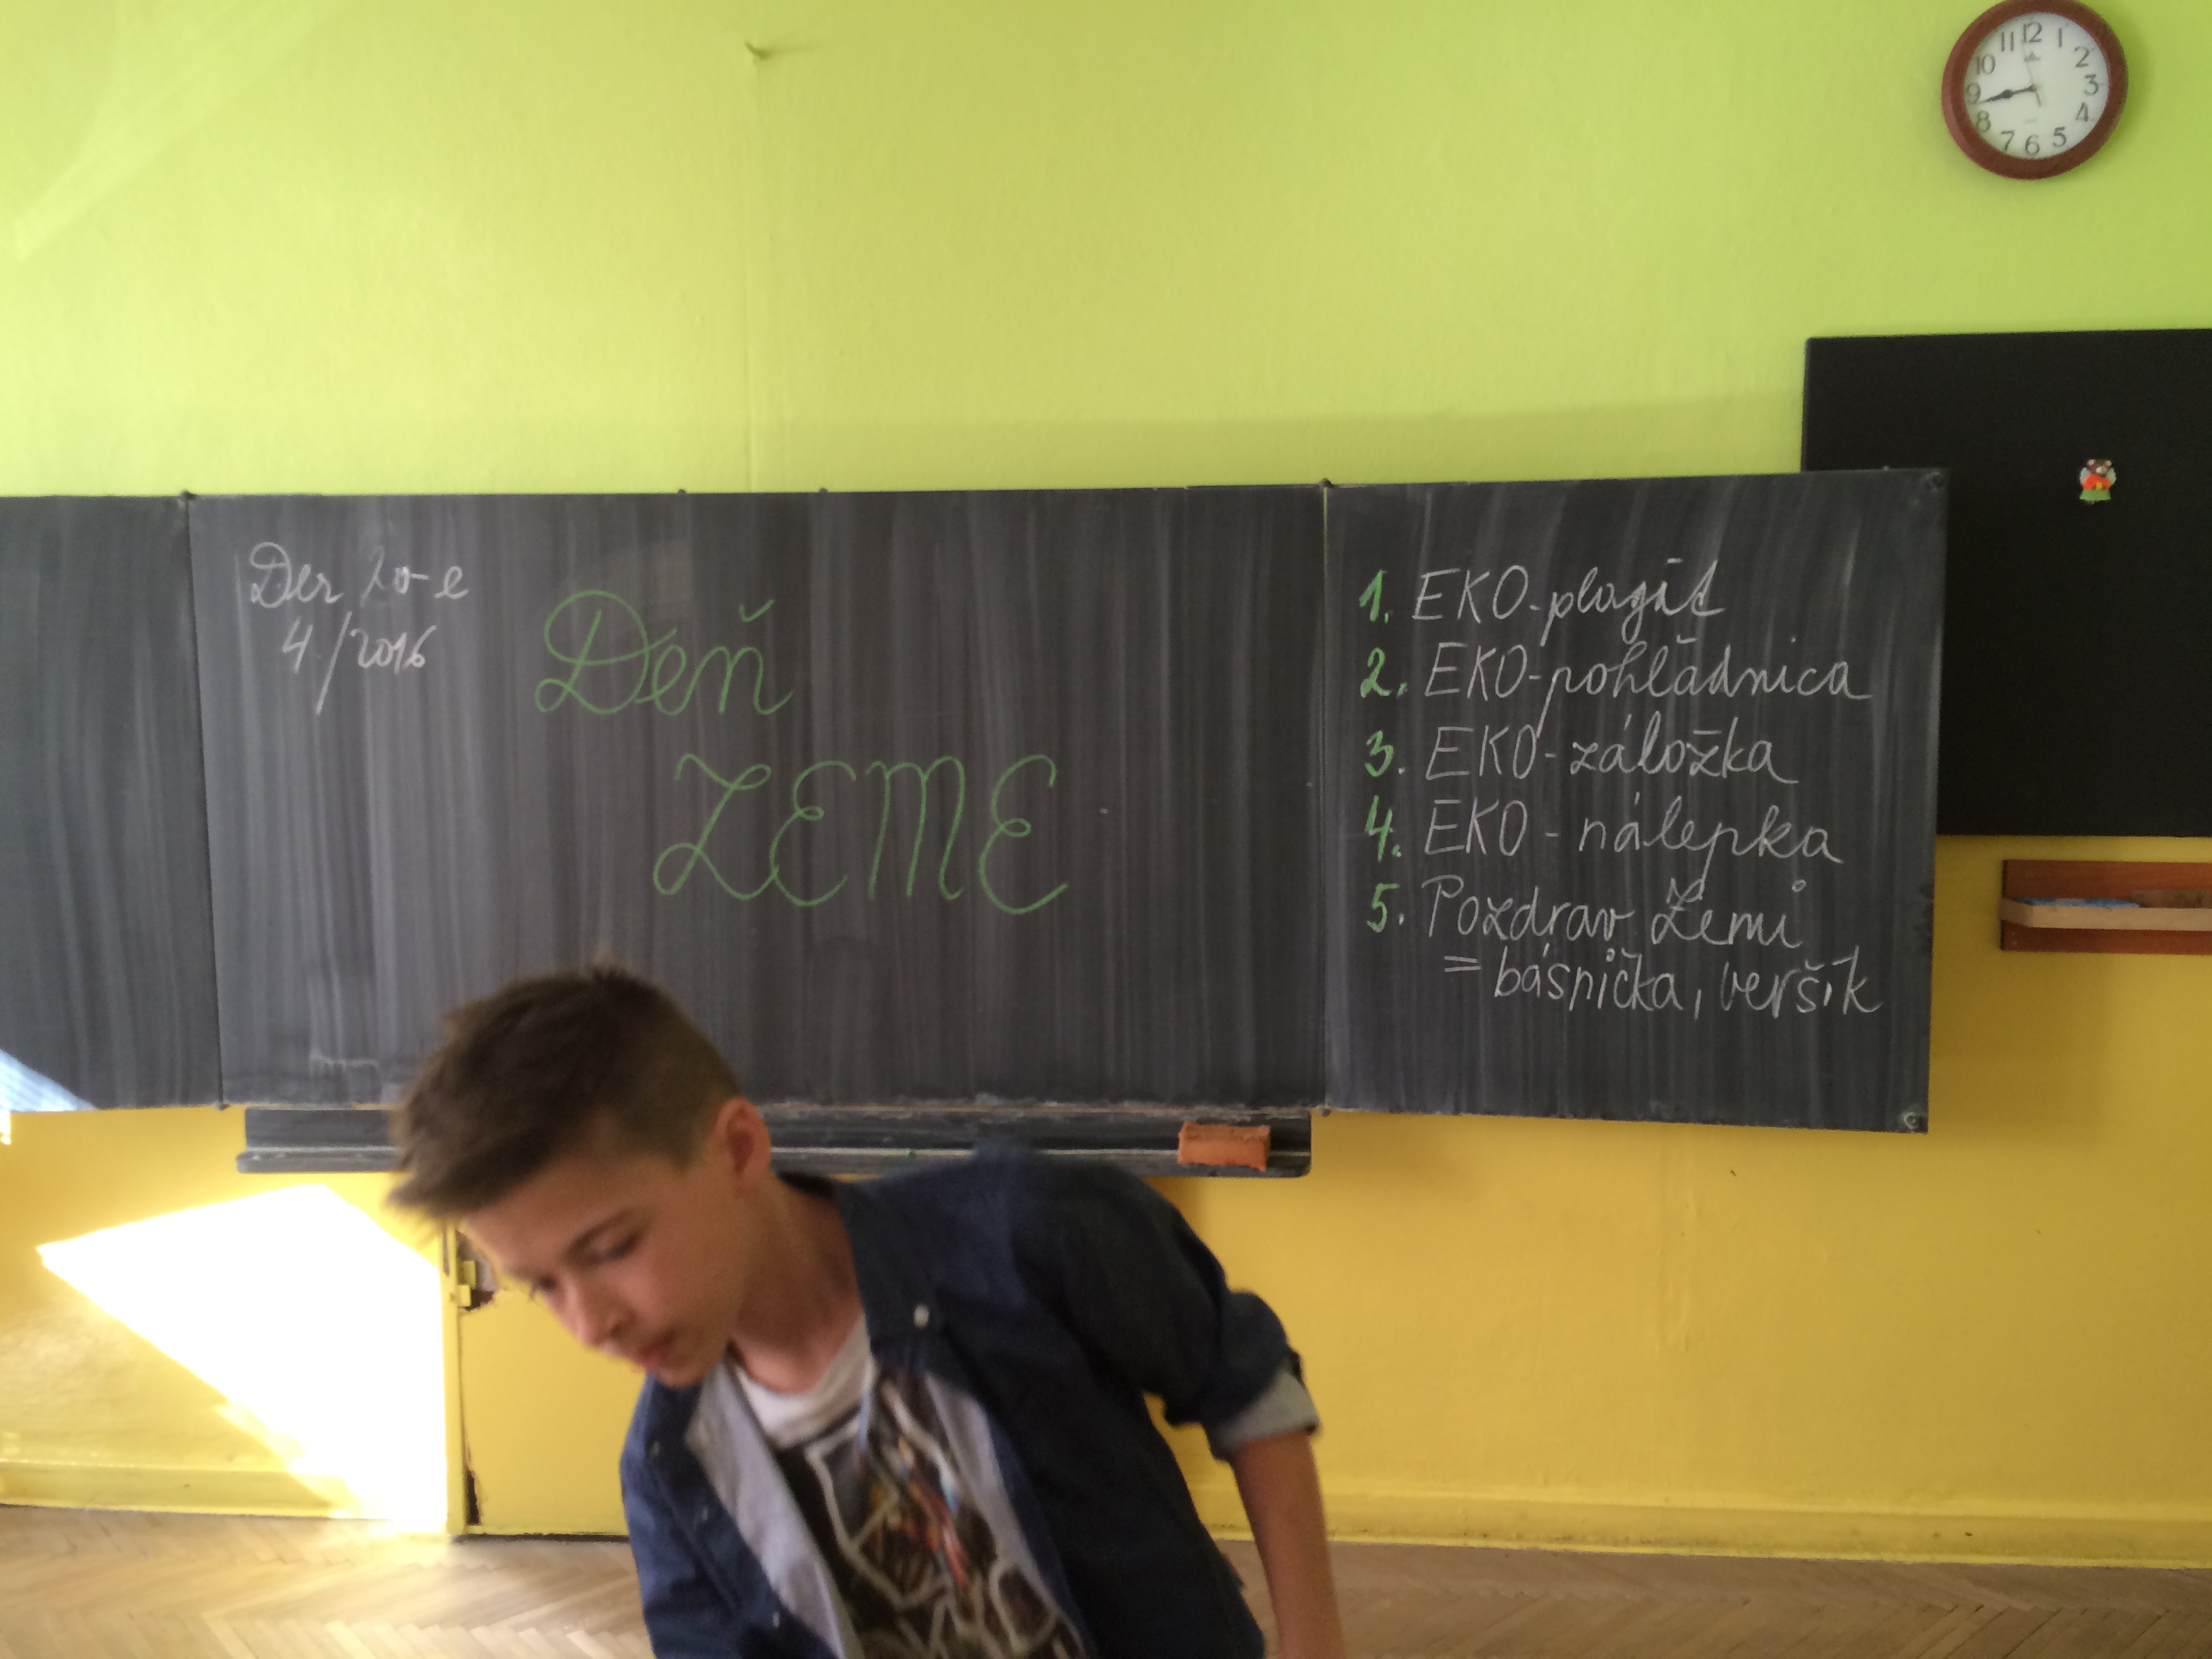 Der 20-e
4/2016
Deň
ZEME
1. EKO-plagát
2. EKO-pohľadnica
3. EKO-záložka
4. EKO-nálepka
5. Pozdrav Zemi
= básnička, veršík
11 12 1
10 2
9 3
8 4
7 6 5